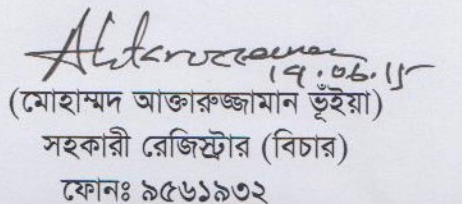 Aktaruzzaman
১৭.০৬.১৫
(মোহাম্মদ আক্তারুজ্জামান ভূঁইয়া)
সহকারী রেজিস্ট্রার (বিচার)
ফোনঃ ৯৫৬১৯৩২